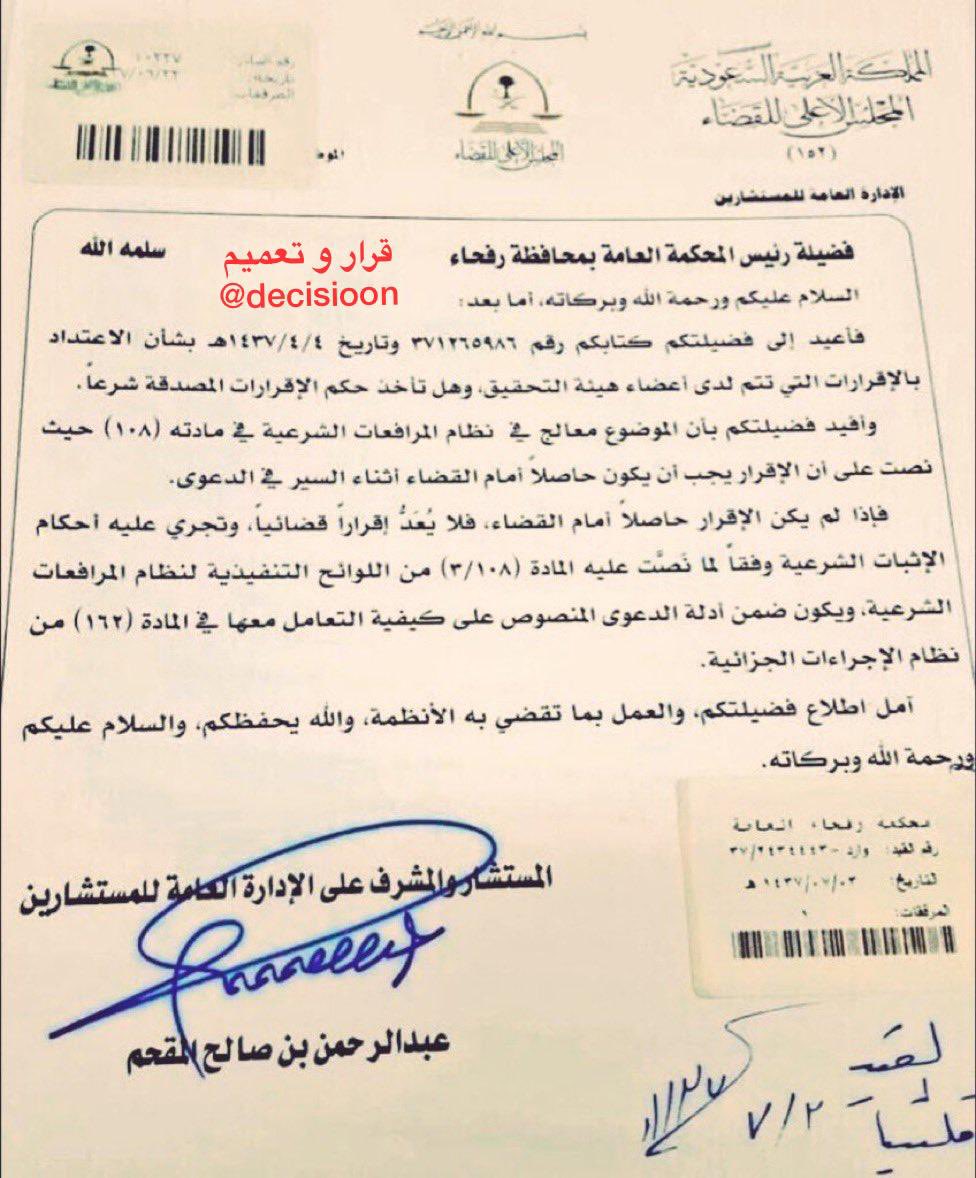 بسم الله الرحمن الرحيم
المملكة العربية السعودية
المجلس الأعلى للقضاء
(١٥٢)
الإدارة العامة للمستشارين
المجلس الأعلى للقضاء
رقم الصادر: ١٠٢٣٧
تاريخه: ٣٧/٠٦/٢٢
المرفقات:
قرار و تعميم
@decisioon
فضيلة رئيس المحكمة العامة بمحافظة رفحاء سلمه الله
السلام عليكم ورحمة الله وبركاته، أما بعد:
فأعيد إلى فضيلتكم كتابكم رقم ٣٧١٢٦٥٩٨٦ وتاريخ ١٤٣٧/٤/٤هـ بشأن الاعتداد
بالإقرارات التي تتم لدى أعضاء هيئة التحقيق، وهل تأخذ حكم الإقرارات المصدقة شرعاً.
وأفيد فضيلتكم بأن الموضوع معالج في نظام المرافعات الشرعية في مادته (١٠٨) حيث
نصت على أن الإقرار يجب أن يكون حاصلاً أمام القضاء أثناء السير في الدعوى.
فإذا لم يكن الإقرار حاصلاً أمام القضاء، فلا يُعَدُّ إقراراً قضائياً، وتجري عليه أحكام
الإثبات الشرعية وفقاً لما نَصَّت عليه المادة (٣/١٠٨) من اللوائح التنفيذية لنظام المرافعات
الشرعية، ويكون ضمن أدلة الدعوى المنصوص على كيفية التعامل معها في المادة (١٦٢) من
نظام الإجراءات الجزائية.
آمل اطلاع فضيلتكم، والعمل بما تقضي به الأنظمة، والله يحفظكم، والسلام عليكم
ورحمة الله وبركاته.
المستشار والمشرف على الإدارة العامة للمستشارين
عبدالرحمن بن صالح المقحم
محكمة رفحاء العامة
رقم القيد: وارد -٣٧/٢٤٣٤٤٤٣
التاريخ: ١٤٣٧/٠٧/٠٣ هـ
المرفقات: ١
٧/٢